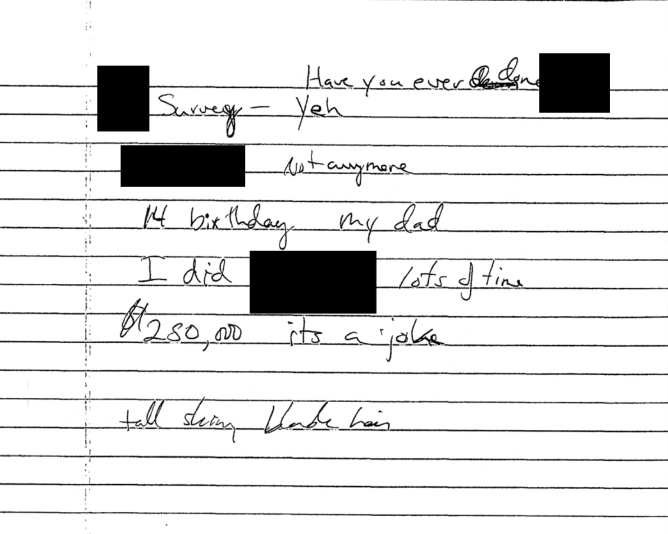 Have you ever done
Survey - Yeh
Not anymore
14 birthday my dad
I did lots of time
$280,000 its a joke
tall skinny blonde hair